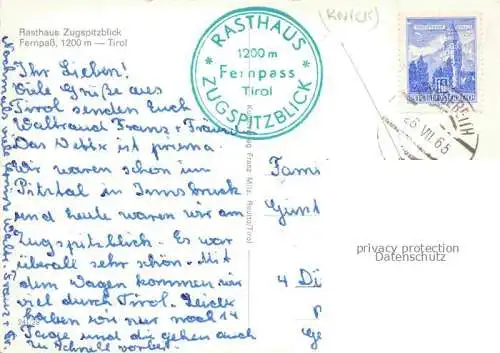 Rasthaus Zugspitzblick
Fernpaß, 1200 m — Tirol
RASTHAUS
1200 m
Fernpass
Tirol
ZUGSPITZBLICK
(KNICK)
26. VII. 65
Ihr Lieben!
Viele Grüße aus
Tirol senden Euch
Waltraud Franz +
Das Wetter ist prima.
Wir waren schon im
Pitztal in Innsbruck
und heute waren wir am
Zugspitzblick. Es war
überall sehr schön. Mit
dem Wagen kommen wir
viel durch Tirol. Leider
haben wir nur noch 14
Tage und die gehen auch
zu schnell vorbei.
Nochmals viele Grüße Waltr. Franz + Tr.
Franz Milz, Reutte/Tirol
Fami
Günt
4 Dü
Ge
privacy protection
Datenschutz